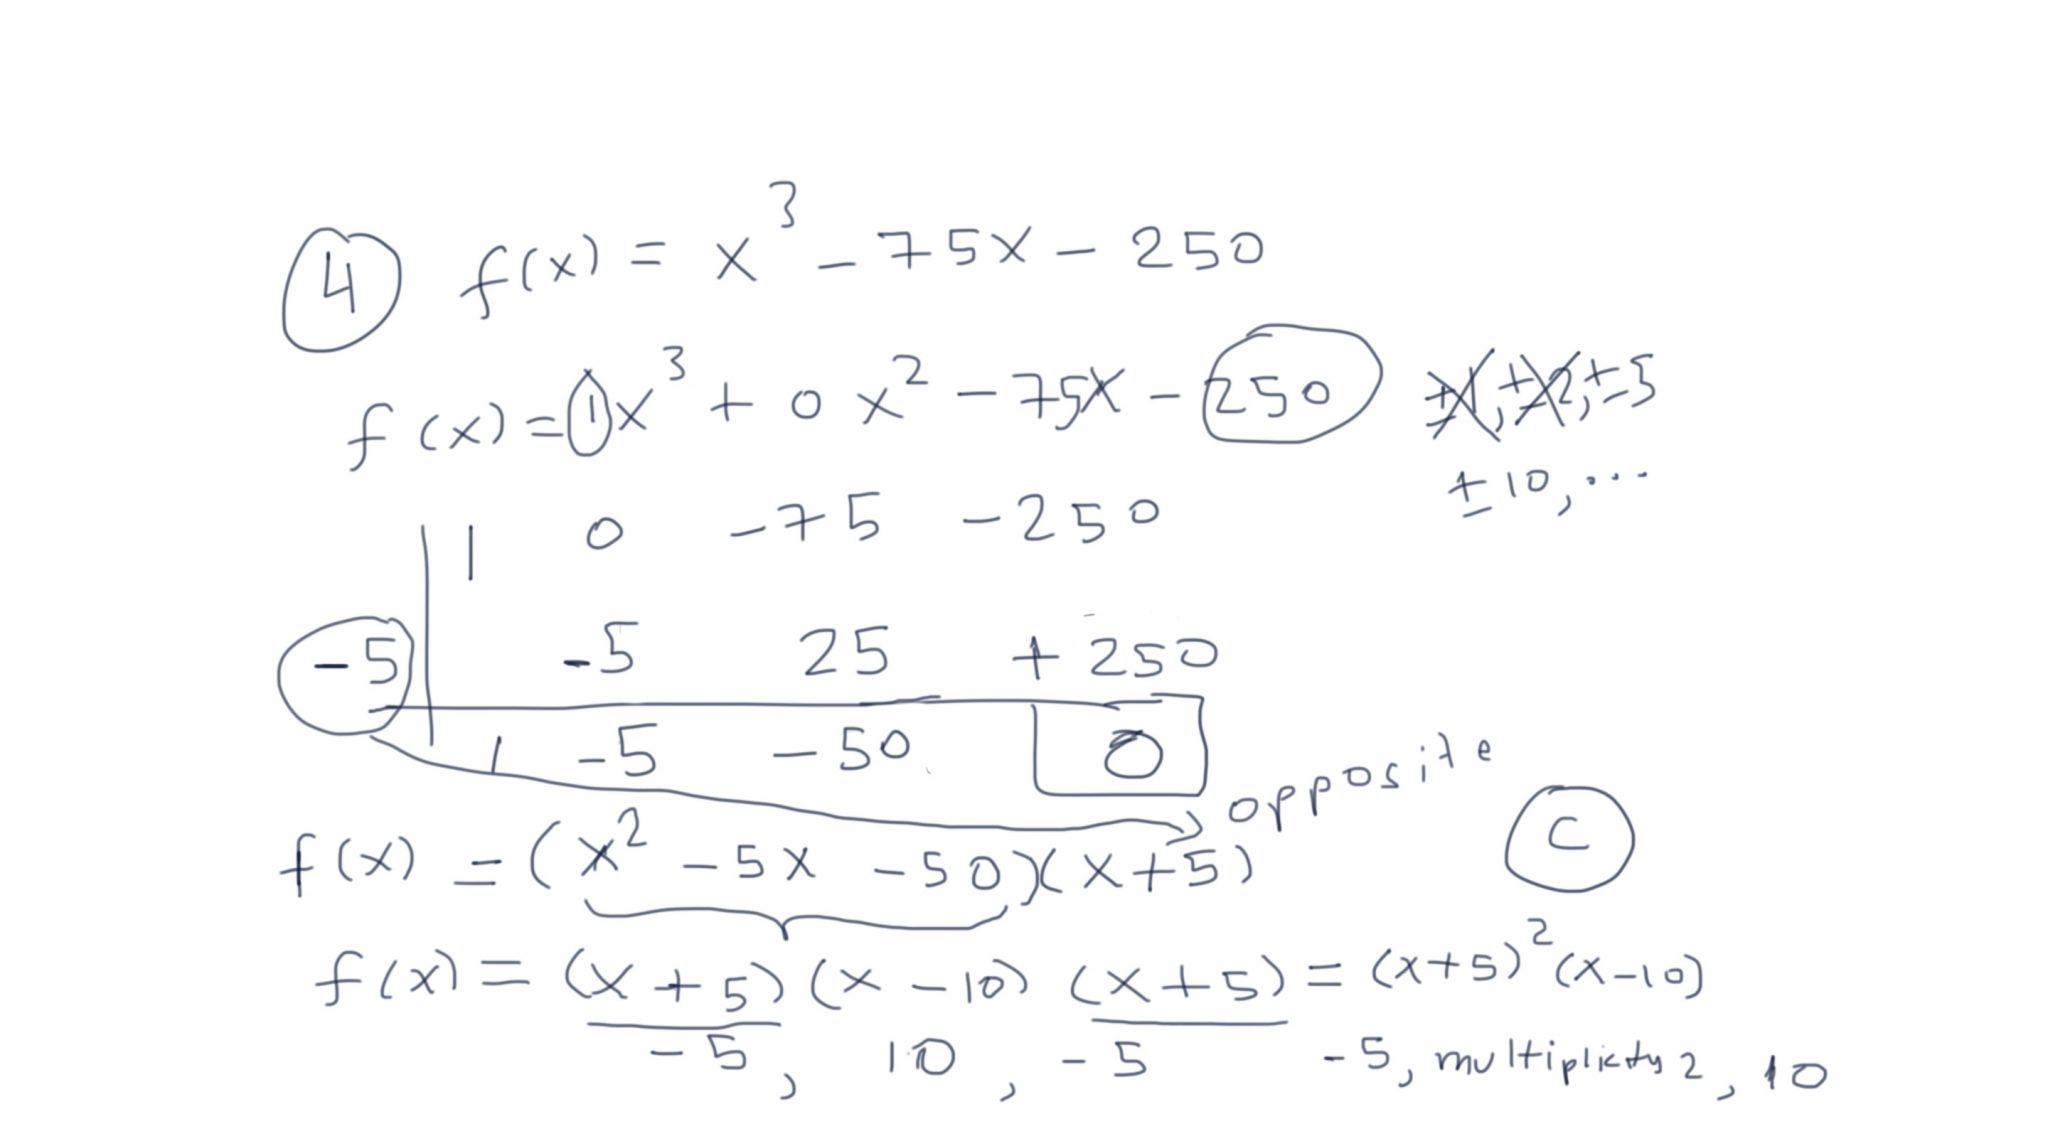 4 f(x) = x³ - 75x - 250
f(x) = 1x³ + 0x² - 75x - 250 ±1, ±2, ±5
±10, ...
1 0 -75 -250
-5 -5 25 +250
1 -5 -50 0
opposite
f(x) = (x² - 5x - 50)(x+5) C
f(x) = (x+5)(x-10)(x+5) = (x+5)²(x-10)
-5, 10, -5 -5, multiplicity 2, 10